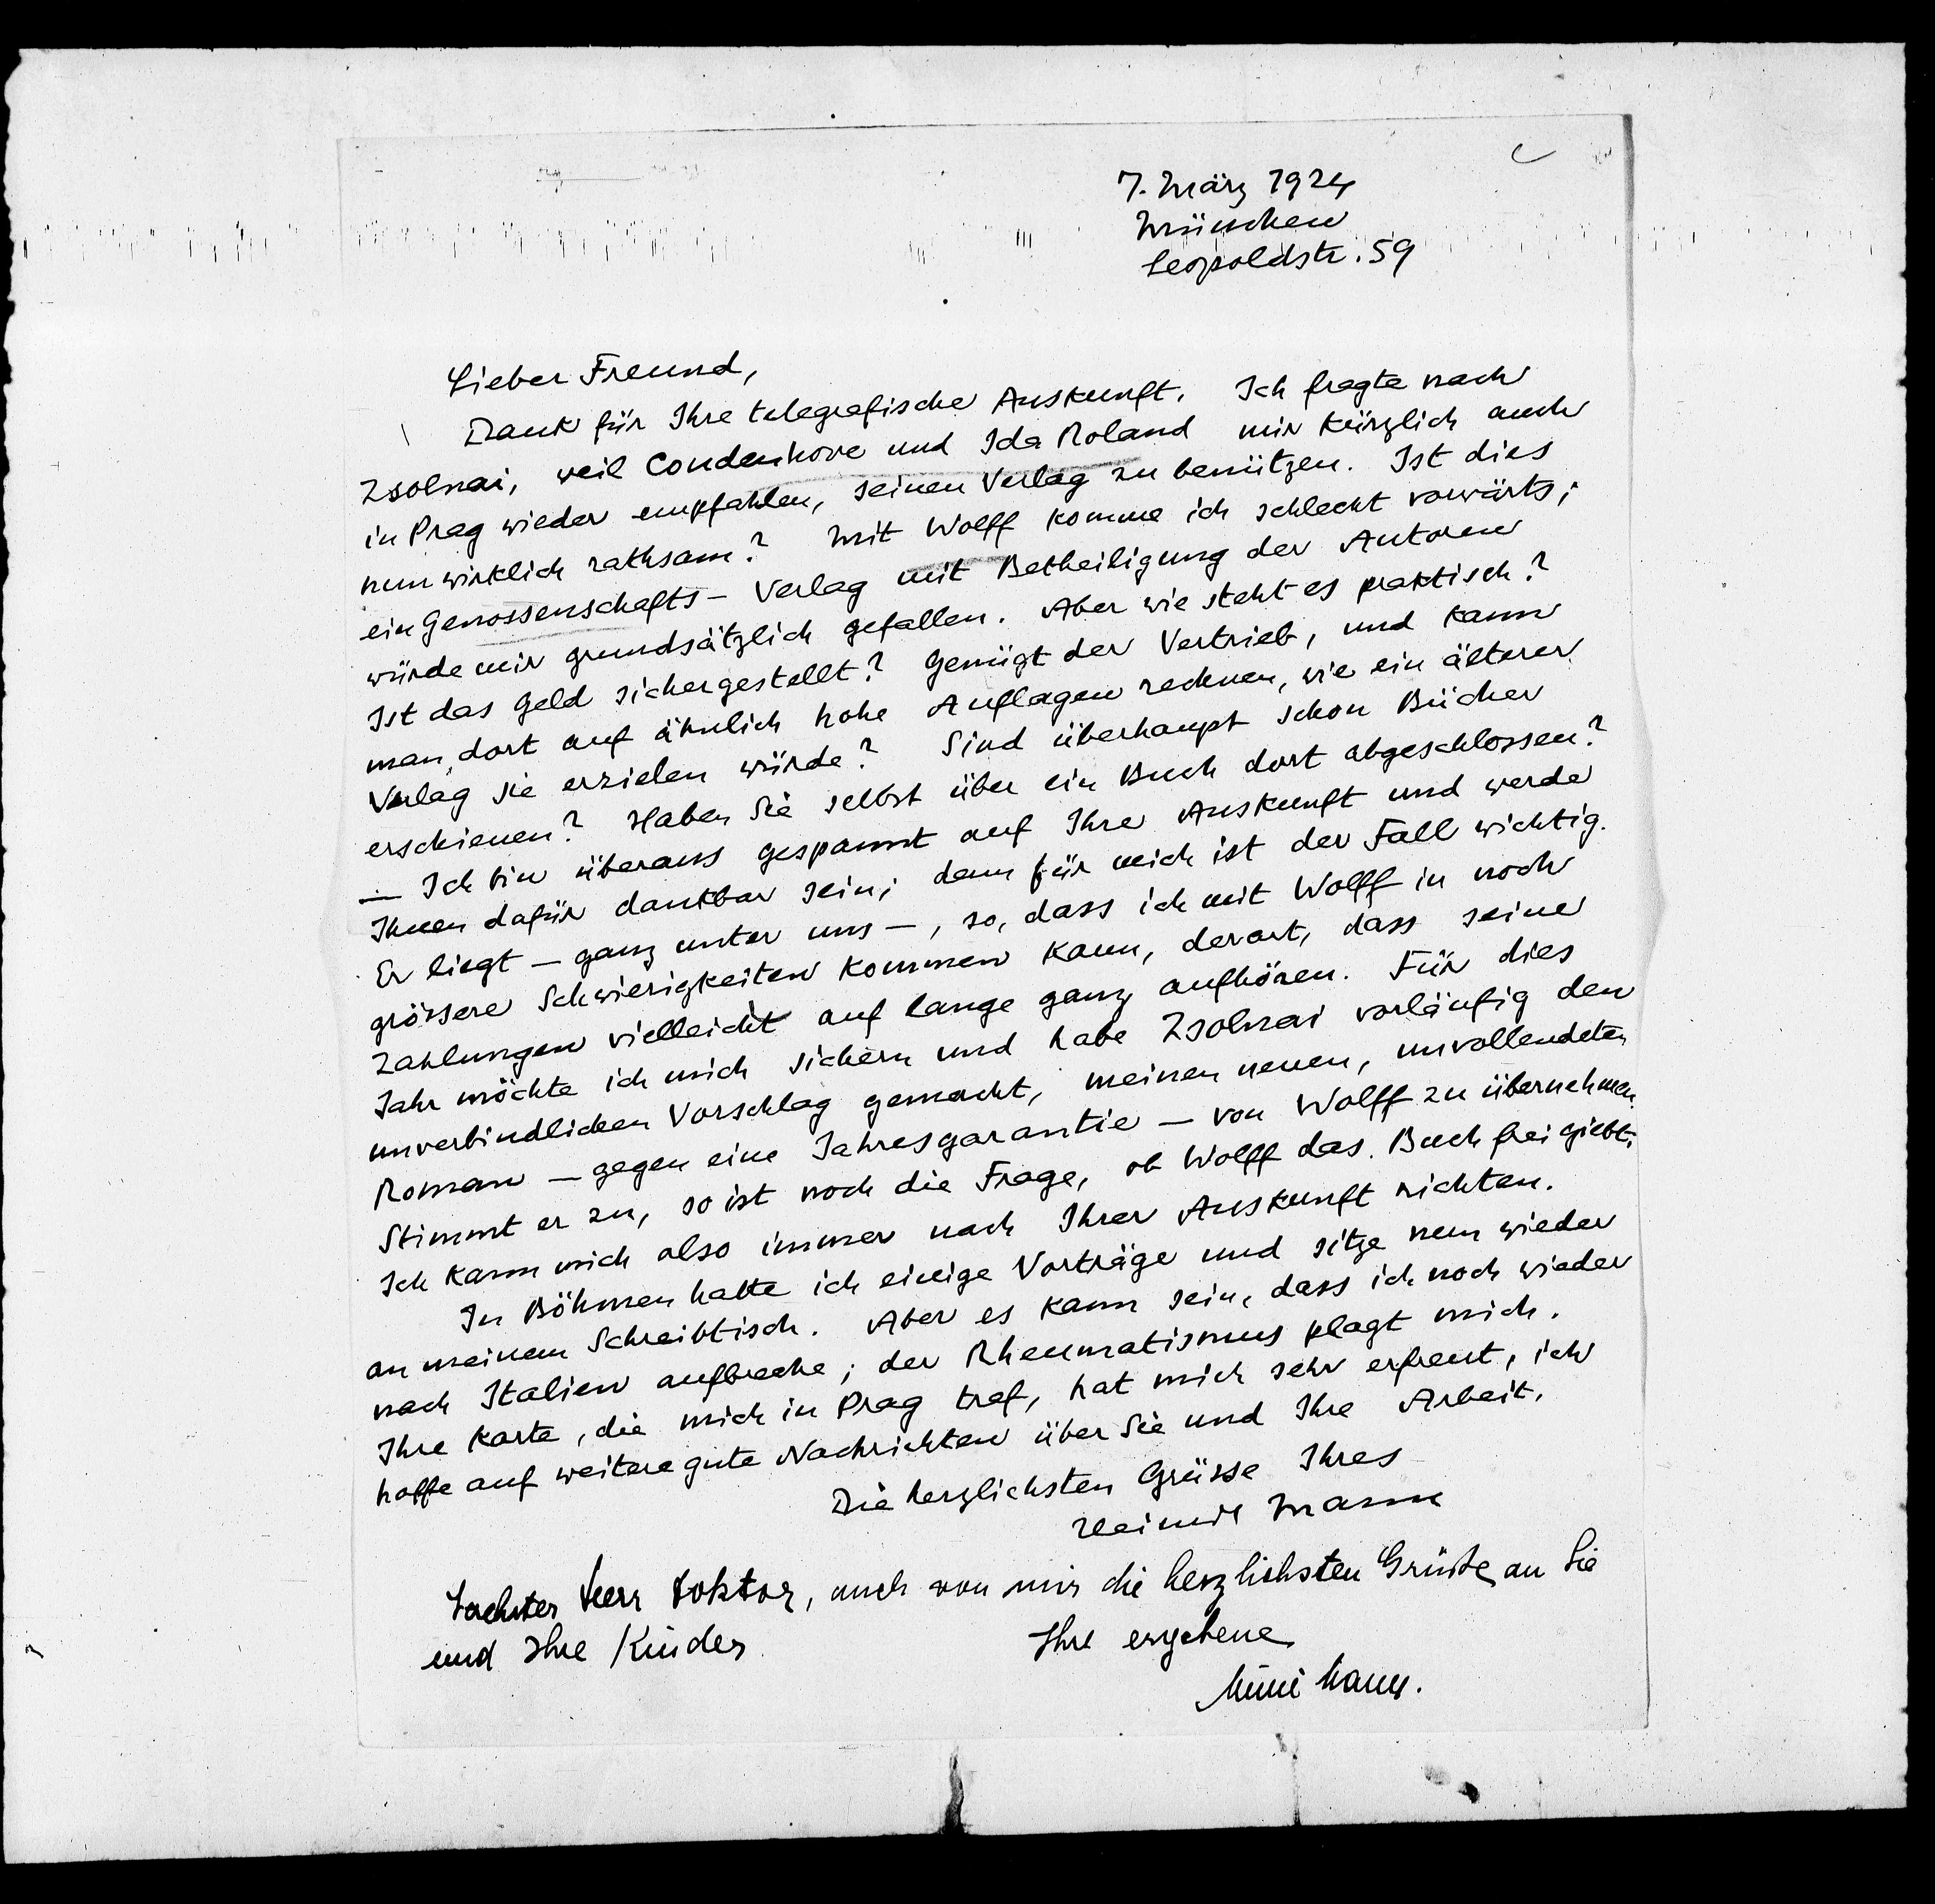 7. März 1924
München
Leopoldstr. 59
Lieber Freund,
Dank für Ihre telegrafische Auskunft. Ich fragte nach
Zsolnai, weil Coudenhove und Ida Roland mir kürzlich auch
in Prag wieder empfahlen, seinen Verlag zu benützen. Ist dies
nun wirklich rathsam? Mit Wolff komme ich schlecht vorwärts;
ein Genossenschafts-Verlag mit Betheiligung der Autoren
würde mir grundsätzlich gefallen. Aber wie steht es praktisch?
Ist das Geld sichergestellt? Genügt der Vertrieb, und kann
man dort auf ähnlich hohe Auflagen rechnen, wie ein älterer
Verlag sie erzielen würde? Sind überhaupt schon Bücher
erschienen? Haben Sie selbst über ein Buch dort abgeschlossen?
— Ich bin überaus gespannt auf Ihre Auskunft und werde
Ihnen dafür dankbar sein; denn für mich ist der Fall wichtig.
Er liegt — ganz unter uns —, so, dass ich mit Wolff in noch
grössere Schwierigkeiten kommen kann, derart, dass seine
Zahlungen vielleicht auf lange ganz aufhören. Für dies
Jahr möchte ich mich sichern und habe Zsolnai vorläufig den
unverbindlichen Vorschlag gemacht, meinen neuen, unvollendeten
Roman — gegen eine Jahresgarantie — von Wolff zu übernehmen.
Stimmt er zu, so ist noch die Frage, ob Wolff das Buch frei giebt.
Ich kann mich also immer nach Ihrer Auskunft richten.
In Böhmen hatte ich einige Vorträge und sitze nun wieder
an meinem Schreibtisch. Aber es kann sein, dass ich noch wieder
nach Italien aufbreche; der Rheumatismus plagt mich.
Ihre Karte, die mich in Prag traf, hat mich sehr erfreut, ich
hoffe auf weitere gute Nachrichten über Sie und Ihre Arbeit.
Die herzlichsten Grüsse Ihres
Heinrich Mann
Herr Doktor, auch von mir die herzlichsten Grüße an Sie
und Ihre Kinder.
Ihre ergebene
Mimi Mann.